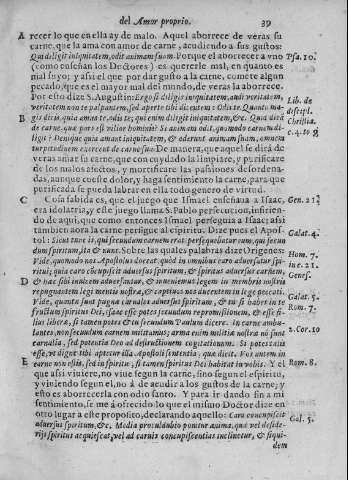 del Amor proprio. 39
A recer lo que en ella ay de malo. Aquel aborrece de veras su
carne, que la ama con amor de carne, acudiendo a sus gustos:
Qui diligit iniquitatem, odit animam suam. Porque el aborrecer a vno Psa. 10.
(como enseñan los Doctores) es quererle mal, en quanto es
mal suyo; y assi el que por dar gusto a la carne, comete algun
pecado, que es el mayor mal del mundo, de veras la aborrece.
Por esto dize S. Augustin: Ergo si diligis iniquitatem, odis veritatem,
veritatem non te palpantem, sed aperte tibi dicentem: Odis te. Quanto ma- Lib. de
B gis dicis, quia amas te, odis te; qui enim diligit iniquitatem, &c. Quia dicā discipl.
de carne, que pars vilior hominis? Si animam odit, quomodo carnem di- Christia.
ligit? Denique quia amant iniquitatem, & oderunt animam suam, omnem c. 4. to 9
turpitudinem exercent de carne sua. De manera, que aquel se dirá de
veras amar su carne, que con cuydado la limpiare, y purificare
de los malos afectos, y mortificare las pasiones desordena-
das, aunque cueste dolor, y haga sentimiento la carne, para que
purificada se pueda labrar en ella todo genero de virtud.
C Cosa sabida es, que el juego que Ismael enseñaua a Isaac, Gen. 21
era idolatria, y este juego llama S. Pablo persecucion, infirien-
do de aqui, que como entonces Ismael perseguia a Isaac; assi
tambien aora la carne persigue al espiritu. Dize pues el Apos-
tol: Sicut tunc is, qui secundum carnem erat persequebatur eum, qui secun Galat. 4.
dum spiritum, ita & nunc. Sobre las quales palabras dize Origenes:
Vide, quomodo nos Apostolus docet, quod in omnibus caro aduersatur spi- Hom. 7.
ritui; quia caro cōcupiscit aduersus spiritum, & spiritus aduersus carnem, in c. 21.
D & hæc sibi inuicem aduersantur, & inuenimus legem in membris nostris Genes.
repugnantem legi mentis nostræ, & captiuos nos ducentem in lege peccati.
Vide, quanta sunt pugna carnalis aduersus spiritum, & tu si habes in te Galat. 5.
fructum spiritus Dei, Isaac esse potes secundum repromissionem, & esse fi- Rom. 7.
lius liberæ, si tamen potes & tu secundum Paulum dicere. In carne ambu-
lantes, non secundum carnem militamus; arma enim militiæ nostræ nō sunt 2. Cor. 10
carnalia, sed potentia Deo ad destructionem cogitationum. Si potes talis
esse, vt digne tibi aptetur illa Apostoli sententia, qua dicit. Vos autem in
E carne non estis, sed in spiritu, si tamen spiritus Dei habitat in vobis. Y el Rom. 8.
que assi viuiere, no viue segun la carne, sino segun el espiritu,
y viuiendo segun el, no á de acudir a los gustos de la carne; y
esto es aborrecerla con odio santo. Y para ir dando fin a mi
sentimiento, se me á ofrecido lo que el mismo Doctor dize en
otro lugar a este proposito, declarando aquello: Caro concupiscit
aduersus spiritum, &c. Media proculdubio ponitur anima, quæ vel deside- Gal. 5.
rijs spiritus acquiescat, vel ad carnis concupiscentias inclinetur, & siqui-
dem